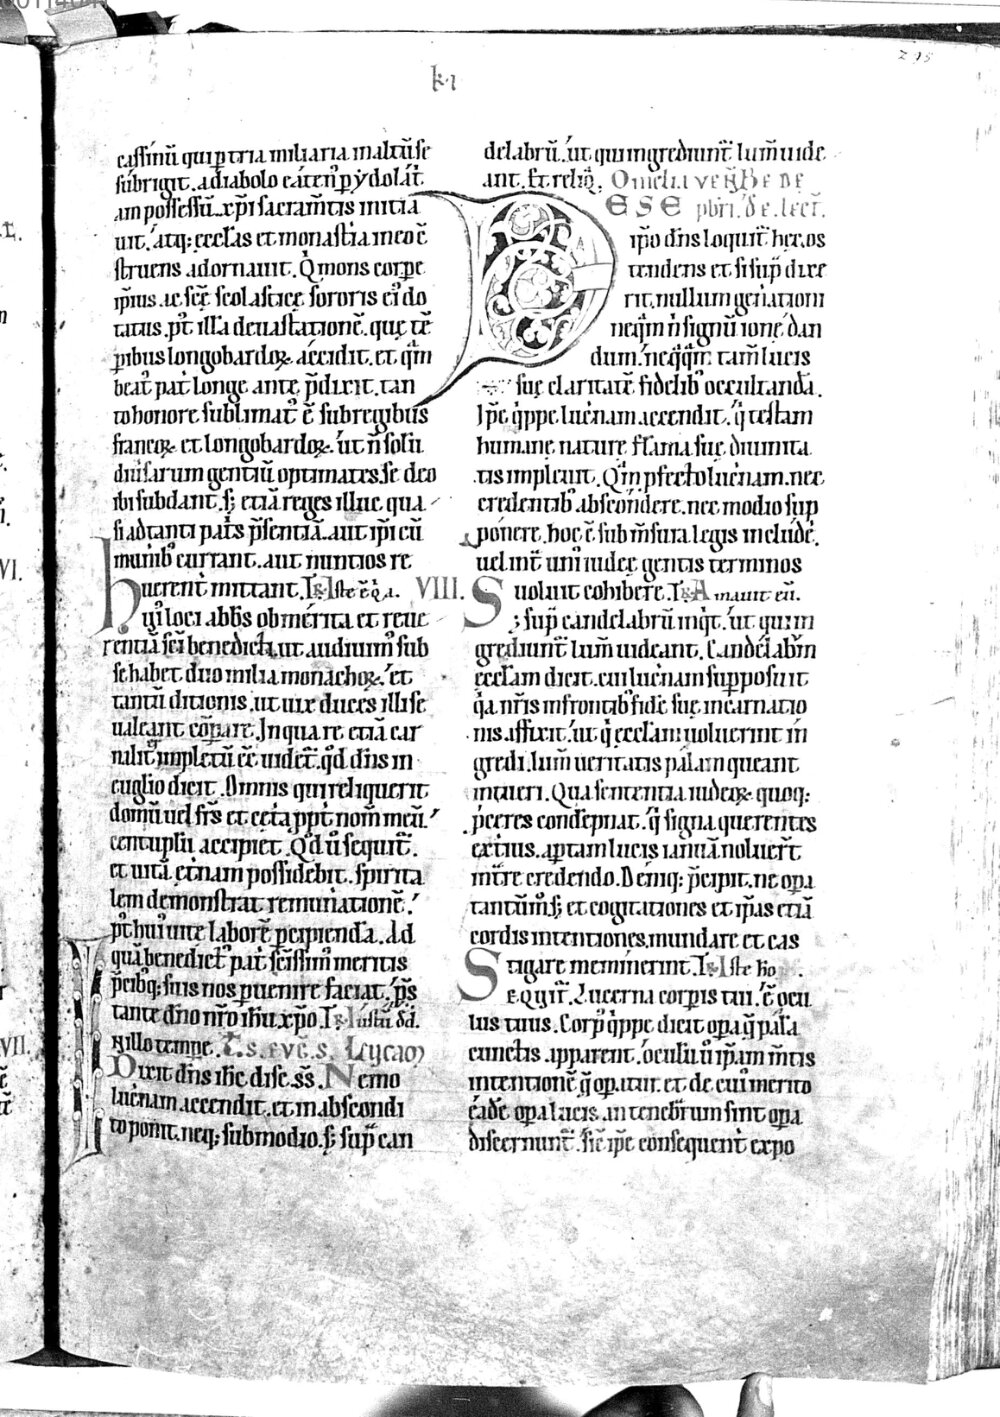 k·ı
295
cassinū qui p tria miliaria in altū se
subrigit. a diabolo eatenꝰ p ydolat
am possessū. xp̄i sacram̄tis initia
uit. atq; eccl̄as et monast̄ia in eo c̄
struens adornauit. Qm̄ons corpe
ip̄ius. ac sc̄ę scolasticę sororis eiꝰ do
tatus. pꝰt illā deuastationē. quę tē
poribus longobardoꝝ accidit. et qm̄
beatꝰ pat̄ longe ante p̄dixit. tan
to honore sublimatꝰ ē sub regibus
francoꝝ et longobardoꝝ. ut n̄ solū
diuersarum gentiū optimates se deo
ibi subdant. s; etiā reges illuc quasi
si ad tanti pat̄s p̄sentiā. aut ip̄i cū
munibꝰ currant. aut nuntios re
uerent̄ mittant. Iste ē q̄ a. VIII.
huiꝰ loci abb̄s ob merita et reue
rentiā sc̄i benedicti. ut audiuimꝰ sub
se habet duo milia monachoꝝ. et
tantū ditionis. ut uix duces illi se
ualeant cōparare. In qua re etiā car
nalit̄ impletū eē uidet̄. qd̄ dn̄s in
euglio dicit. Omnis qui reliquerit
domū uel fr̄s et cet̄a ppt̄ nom̄ meū.
centuplū accipiet. Qd̄ ū sequit̄.
et uitā et̄nam possidebit. spirita
lem demonstrat remun̄ationē.
pꝰt huiꝰ uite laborē percipiendā. Ad
quā benedictꝰ pat̄ sc̄issimꝰ meritis
p̄cibꝰq; suis nos puenire faciat. p̄s
tante dn̄o nr̄o ih̄u xp̄o. Iustū dd̄.
In illo tempr̄e. VII.
Dixit dn̄s ih̄c disc. ss. Nemo
lucn̄am accendit. et in abscondi
to ponit. neq; sub modio. s; sup can
delabrū. ut qui ingrediunt̄ lum̄ uide
ant. Et reliq̄. Omelia ven̄. Be De
ESE pbr̄i. de. lect̄.
ipo dn̄s loquit̄ hec. os
tendens et si sup̄ dixe
rit. nullum gen̄ationi
neq̄m n̄ signū ione dan
dum. neq̄q̄m tam̄ lucis
suę claritatē fidelibꝰ occultandā.
Ip̄e q̄ppe lucn̄am accendit. q̄ testam
humanę naturę flama suę diuinita
tis impleuit. Qm̄ pfecto lucn̄am nec
credentibꝰ abscondere. nec modio sup
ponere. hoc ē sub m̄sura legis include.
uel int̄ uniꝰ iudeę gentis terminos
uoluit cohibere. Amauit eū.
S; sup candelabrū inq̄t. ut qui in
grediunt̄ lum̄ uideant. Candelabrm̄
eccl̄am dicit. cui lucn̄am supposuit
q̄a nr̄is in frontibꝰ fidē suę incarnatio
nis affixit. ut q̄ eccl̄am uoluerint in
gredi. lum̄ ueritatis palam queant
intueri. Qua sententia iudeoꝝ quoq;
p̄ceres condēpnat. q̄ signa querentes
extius. aptam lucis ianuā noluer̄t
int̄re credendo. Deniq; p̄cipit. ne opa
tantūm. s; et cogitationes et ip̄as etiā
cordis intentiones. mundare et cas
tigare meminerint. Iste ho
Sequit̄. Lucerna corporis tui. ē ocu
lus tuus. Corpꝰ q̄ppe dicit opa q̄ palā
cunctis apparent. oculū ū ip̄am m̄tis
intentionē q̄ opatur. et de cuiꝰ merito
eade opa lucis. an tenebrarum sint opa
discernunt̄. sic̄ ip̄e consequent̄ expo